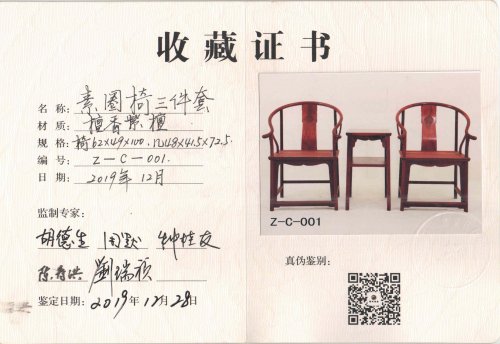 收藏证书
名称: 素圈椅三件套
材质: 檀香紫檀
规格: 椅62x49x100. 几48x41.5x72.5.
编号: Z-C-001.
日期: 2019年12月
监制专家:
胡德生 周默
刘瑞祯
鉴定日期: 2019年12月28日
Z-C-001
真伪鉴别: